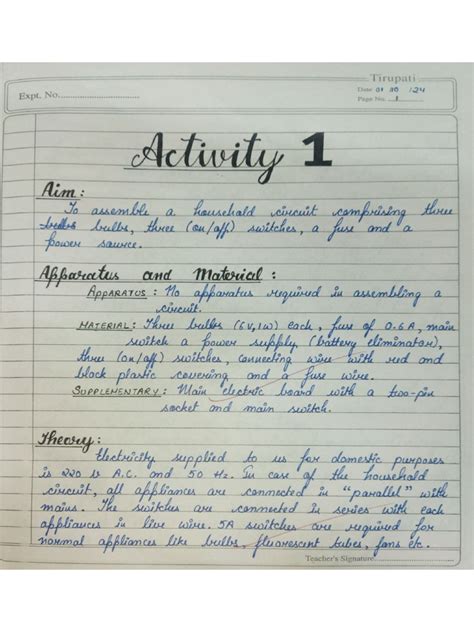 Tirupati
Expt. No.
Date 01 06 24
Page No. 1
Activity 1
Aim:
To assemble a household circuit comprising three
bulbs, three (on/off) switches, a fuse and a
power source.
Apparatus and Material:
APPARATUS: No apparatus required in assembling a
circuit.
MATERIAL: Three bulbs (6V, 1W) each, fuse of 0.6A, main
switch a power supply, (battery eliminator),
three (on/off) switches, connecting wire with red and
black plastic covering and a fuse wire.
SUPPLEMENTARY: Main electric board with a two-pin
socket and main switch.
Theory:
Electricity supplied to us for domestic purposes
is 220 V A.C. and 50 Hz. In case of the household
circuit, all appliances are connected in "parallel" with
mains. The switches are connected in series with each
appliances in live wire. 5A switches are required for
normal appliances like bulbs, fluorescent tubes, fans etc.
Teacher's Signature